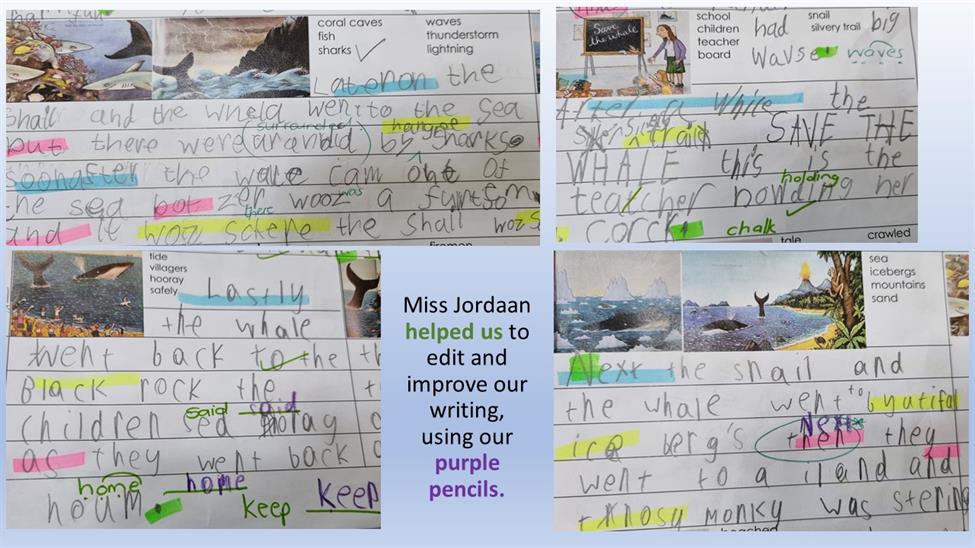 coral caves
fish
sharks
waves
thunderstorm
lightning
Lateron the
Snail and the whela wen to the Sea
surrounded
but there were aranbld by Sharks.
soonafter the wale cam out of
the sea bot zer wooz a
was
there
and it wooz sckere the Snail woz
school
children
teacher
board
snail
silvery trail
had
big
wavse
waves
After a while the
trail SAVE THE
WHALE this is the
holding
teacher howlding her
corck chalk
tale
crawled
Save
the whale
tide
villagers
hooray
safely
Lastly
the whale
went back to the
Black rock the
said said
children sed horay
as they went back
home home
houm. keep keep
Miss Jordaan
helped us to
edit and
improve our
writing,
using our
purple
pencils.
sea
icebergs
mountains
sand
Next the snail and
the whale went to byutiful
Next
ice berg's then they
went to a iland and
a knosy monky was